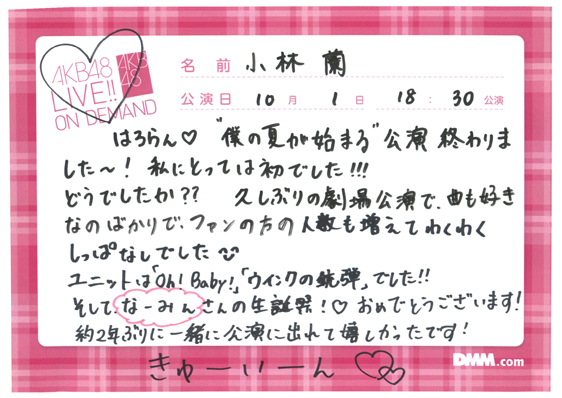 AKB48
LIVE!!
ON DEMAND
AKB
48
名前 小林 蘭
公演日 10月 1日 18:30公演
はろらん♡ "僕の夏が始まる"公演 終わりま
した〜! 私にとっては初でした!!!
どうでしたか?? 久しぶりの劇場公演で、曲も好き
なのばかりで、ファンの方の人数も増えてわくわく
しっぱなしでした
ユニットは「Oh! Baby!」「ウインクの銃弾」でした!!
そして、なーみんさんの生誕祭!♡ おめでとうございます!
約2年ぶりに一緒に公演に出れて嬉しかったです!
きゅーいーん
DMM.com